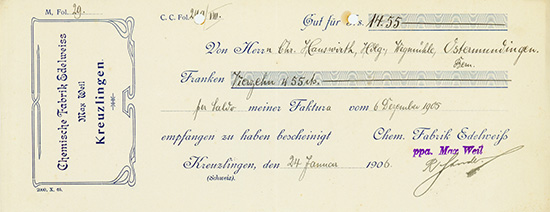 M. Fol. 29.
C. C. Fol. 249/VIII.
Gut für Frs. 14.55
Chemische Fabrik Edelweiss
Max Weil
Kreuzlingen.
Von Herrn Chr. Hauswirth, Hdlg. Wegmühle, Ostermundingen.
Bern.
Franken Vierzehn & 55 cts.
per Saldo meiner Faktura vom 6 Dezember 1905
empfangen zu haben bescheinigt Chem. Fabrik Edelweiß
ppa. Max Weil
Kreuzlingen, den 24 Januar 1906.
(Schweiz).
2000, X. 05.